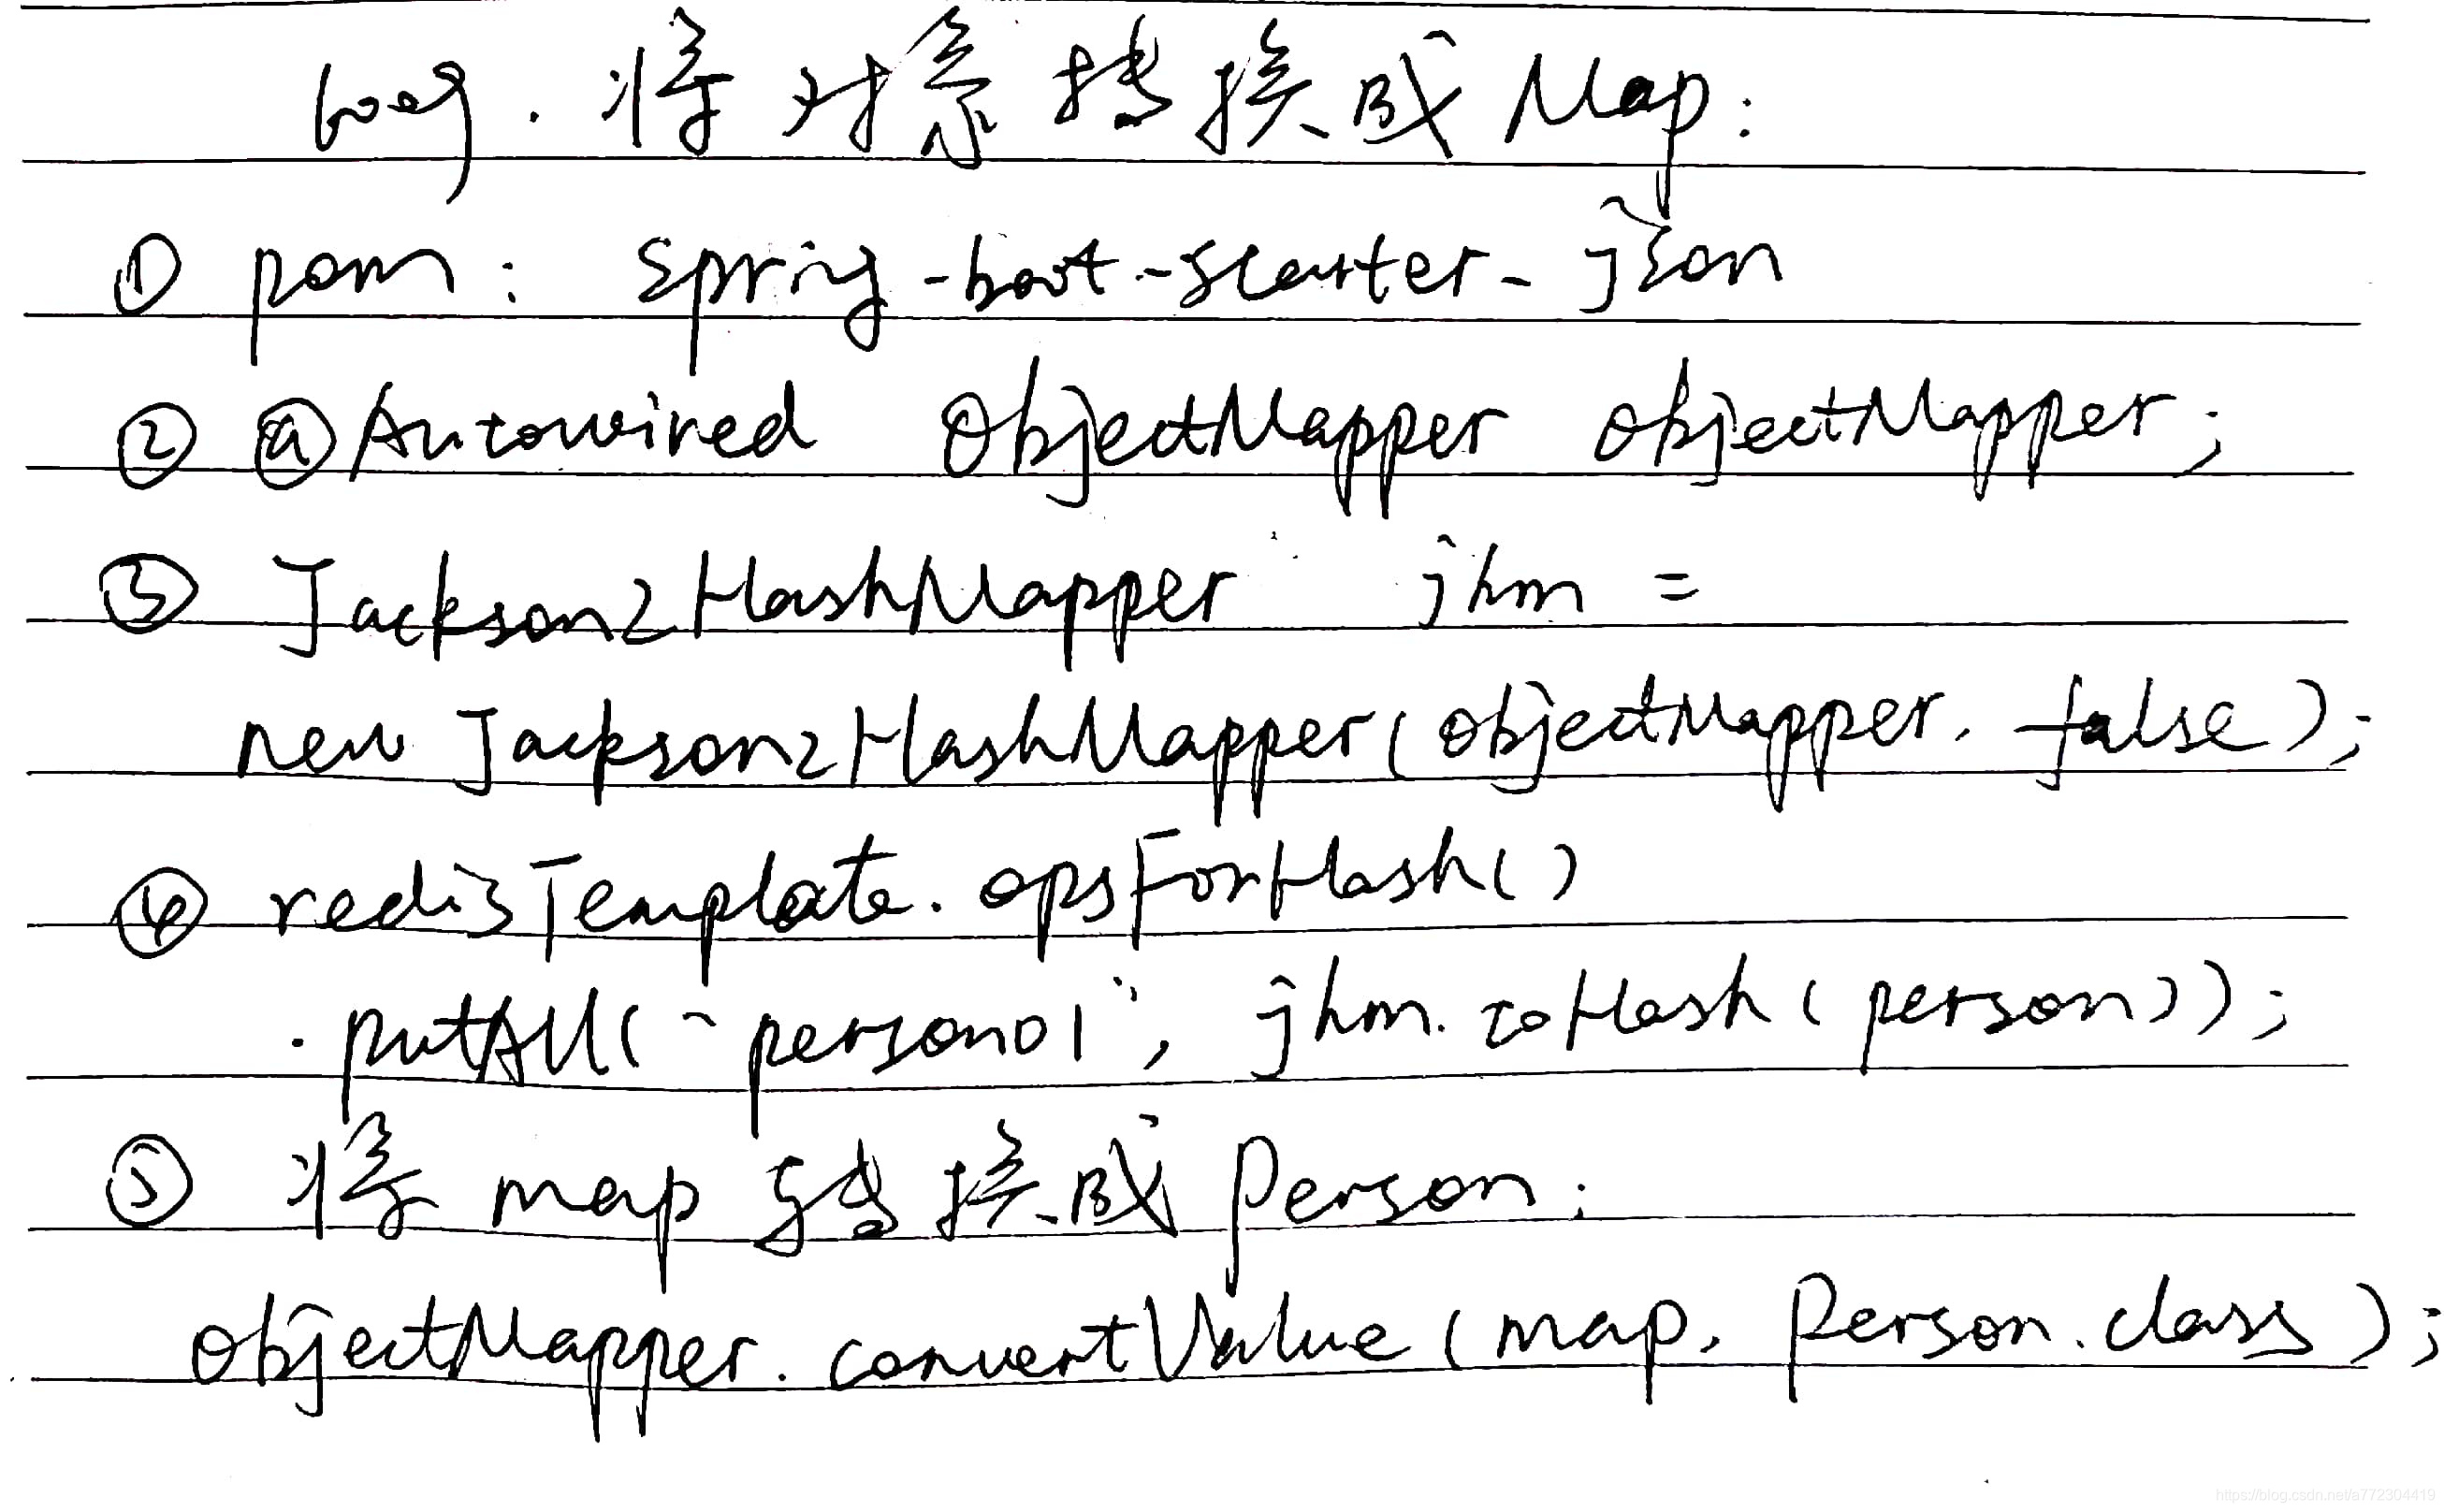 beg. 将对象转换成Map:
① pom: spring-boot-starter-json
② @Autowired ObjectMapper objectMapper;
③ Jackson2HashMapper jhm =
new Jackson2HashMapper(objectMapper, false);
④ redisTemplate.opsForHash()
.putAll("person01", jhm.toHash(person));
⑤ 将map转换成Person:
objectMapper.convertValue(map, Person.class);
https://blog.csdn.net/a772304419